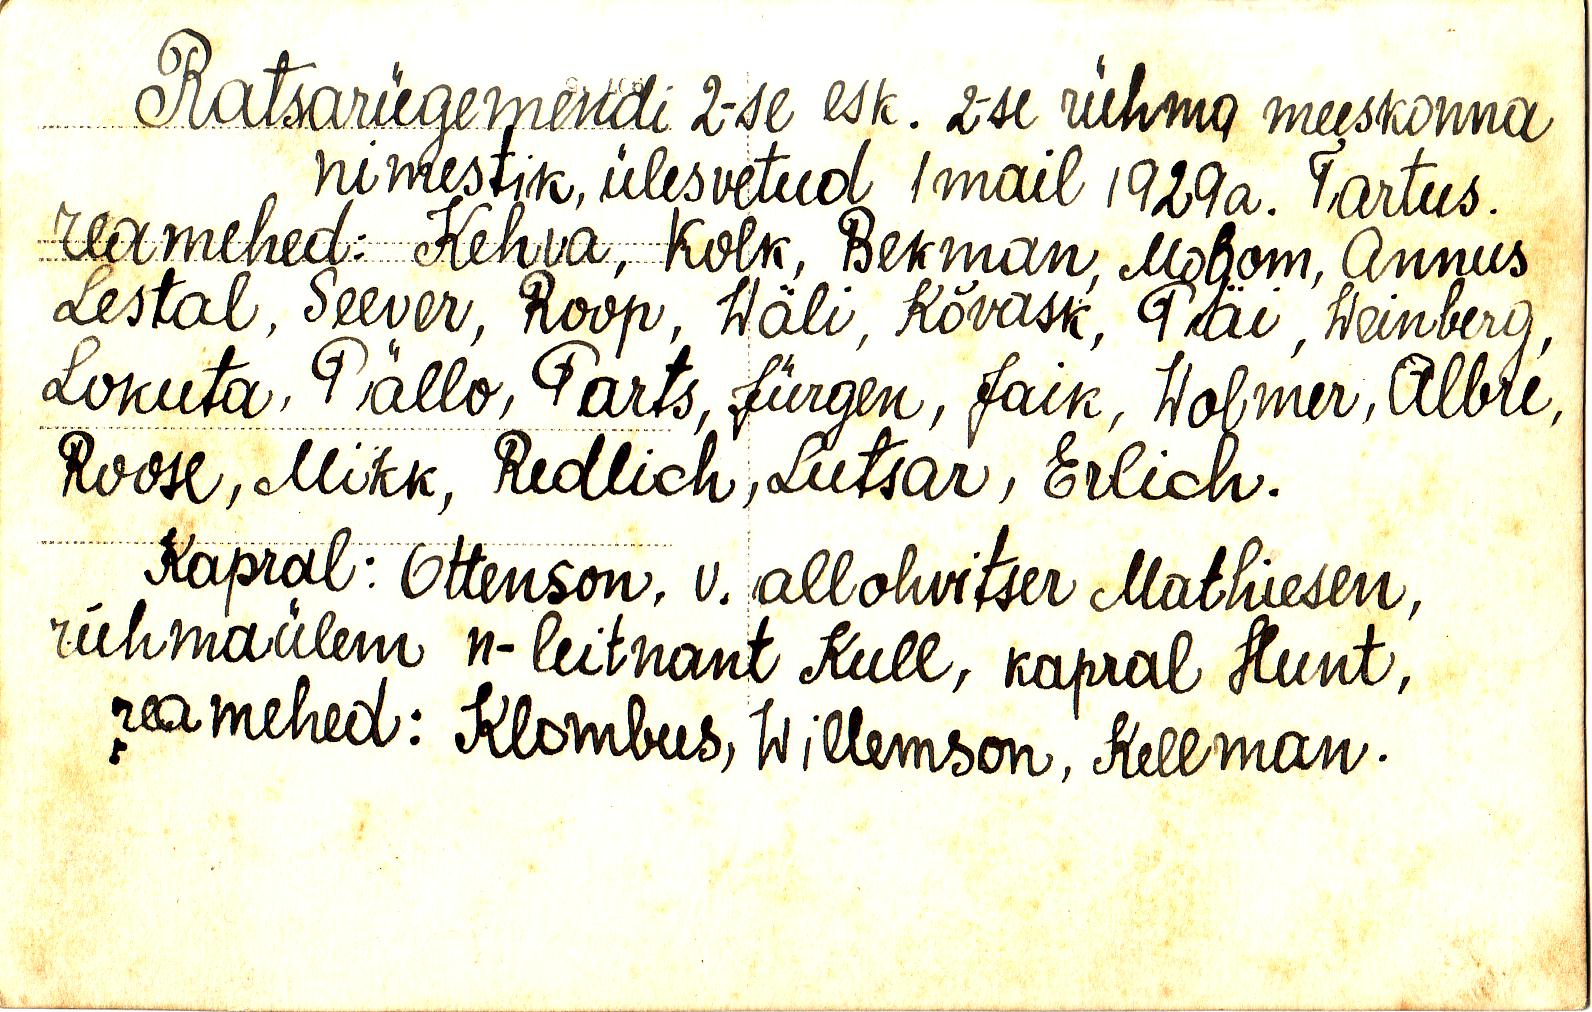 Ratsarügemendi 2-se esk. 2-se rühma meeskonna
nimestik, ülesvetud 1 mail 1929a. Tartus.
reamehed: Kehva, Kolk, Bekman, Annus
Lestal, Seever, Roop, Wäli, Kõvask, Päi, Weinberg,
Lokuta, Pällo, Parts, Jürgen, Jaik, Wolmer, Albre,
Roose, Mikk, Redlich, Lutsar, Erlich.
Kapral: Ottenson, v. allohvitser Mathiesen,
rühmaülem n-leitnant Kull, kapral Hunt,
reamehed: Klombus, Willemson, Kellman.